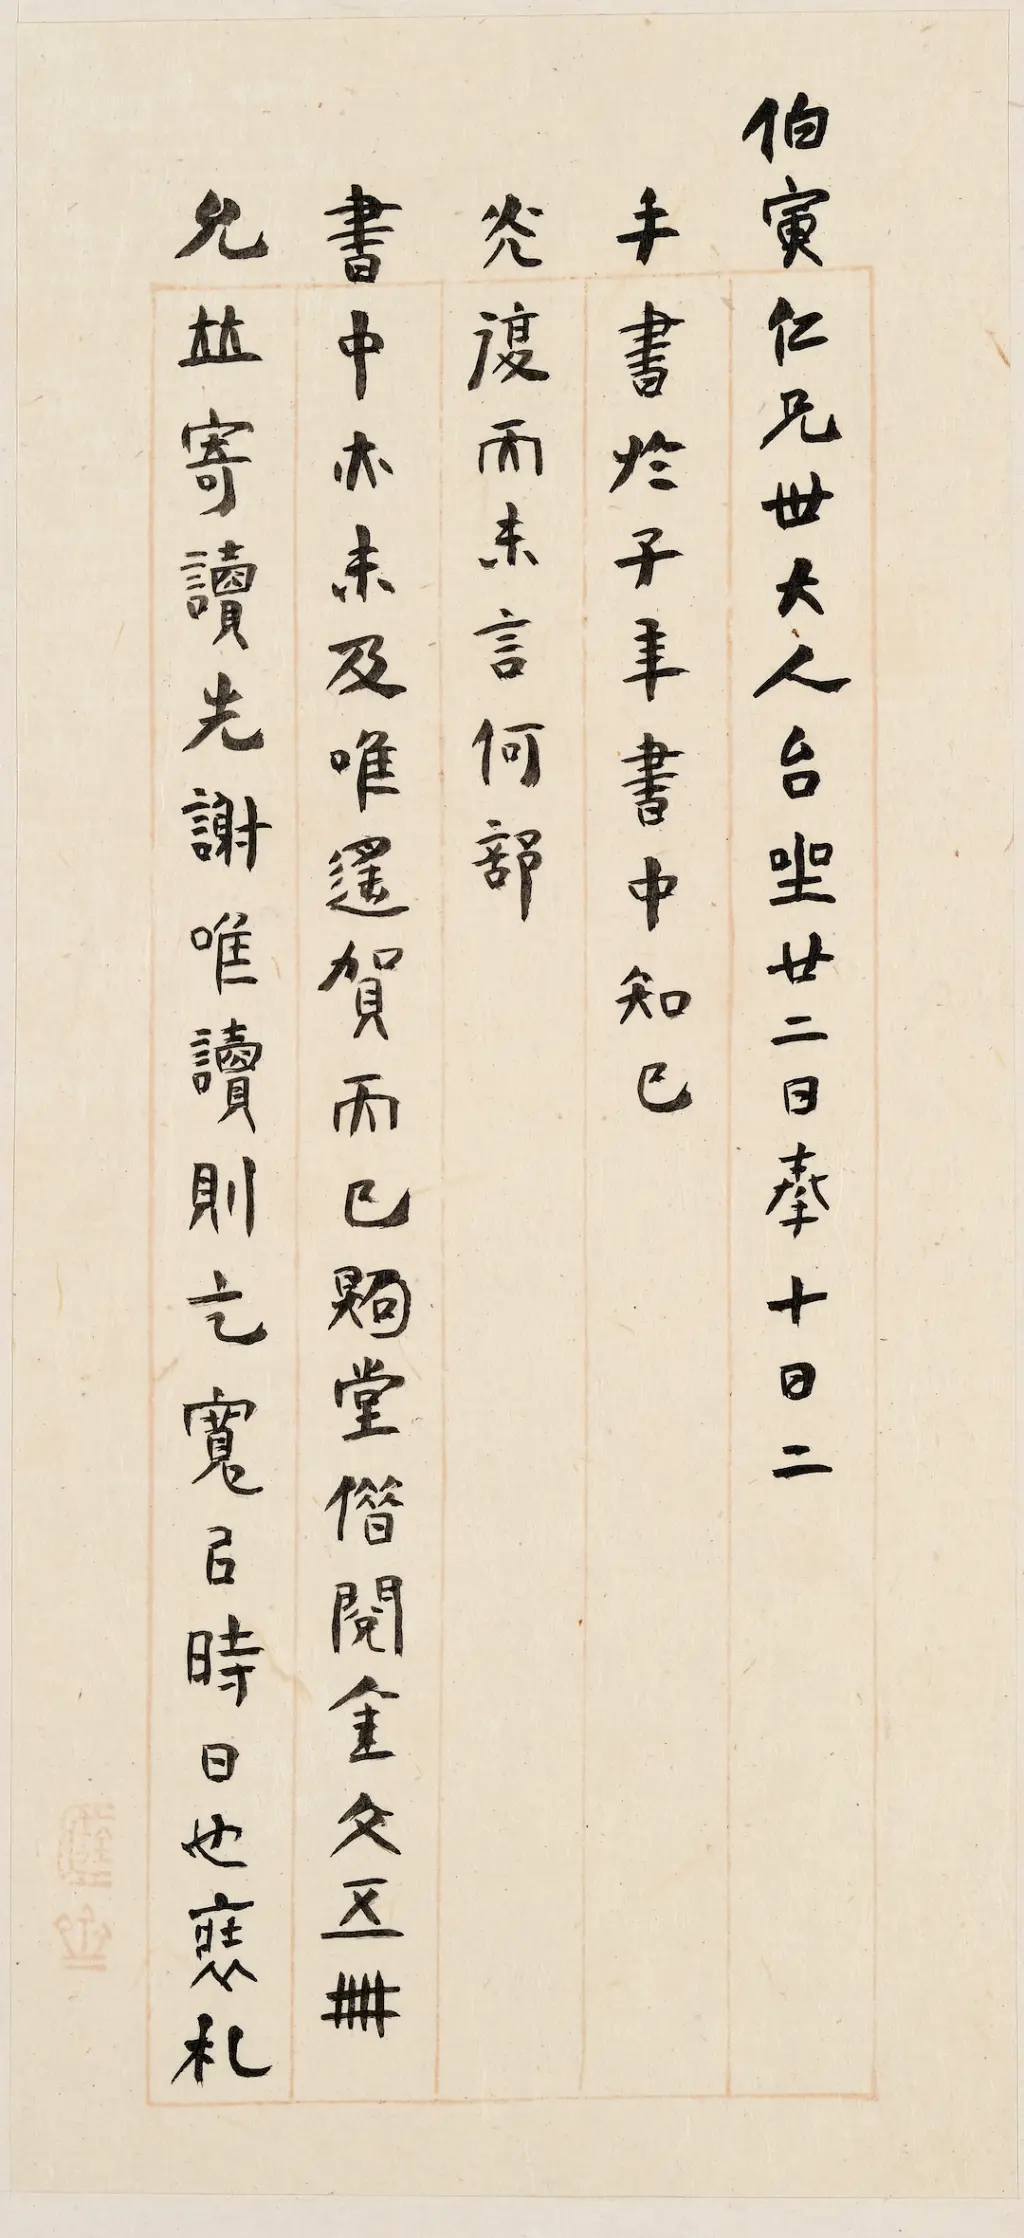 伯寅仁兄世大人台坐廿二日奉十日二
手書於子年書中知已
灮復而未言何部
書中亦未及唯遙賀而已煦堂借閱金文五冊
允竝寄讀先謝唯讀則乞寬㠯時日也札